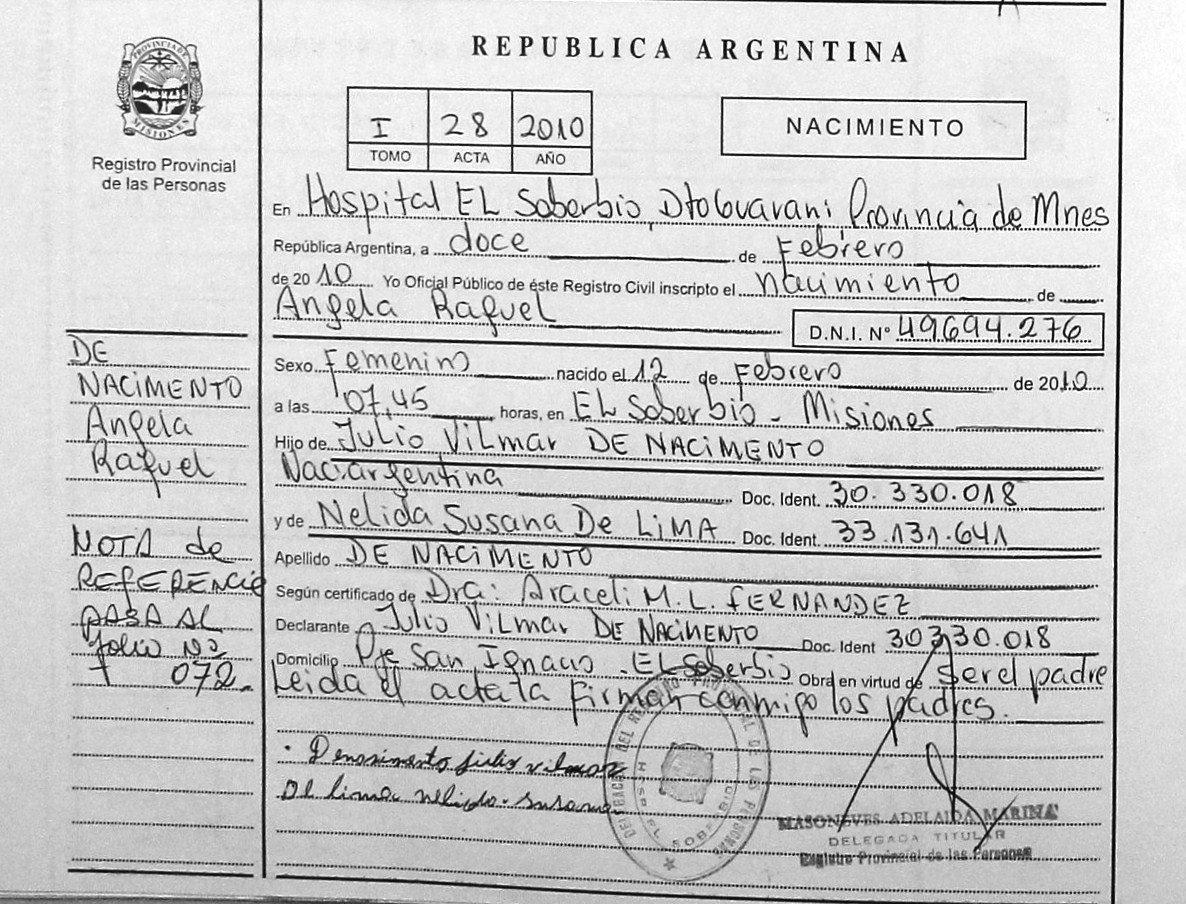 PROVINCIA DE MISIONES
Registro Provincial
de las Personas
REPUBLICA ARGENTINA
I 28 2010
TOMO ACTA AÑO
NACIMIENTO
En Hospital EL Soberbio, Dto Guarani, Provincia de Mnes
República Argentina, a doce de Febrero
de 20 10 Yo Oficial Público de éste Registro Civil inscripto el nacimiento de
Angela Raquel
D.N.I. Nº 49694.276
Sexo Femenino nacido el 12 de Febrero de 2010
a las 07,45 horas, en EL Soberbio - Misiones
Hijo de Julio Vilmar DE NACIMENTO
Nac: argentina Doc. Ident. 30.330.018
y de Nelida Susana De LIMA Doc. Ident. 33.131.641
Apellido DE NACIMENTO
Según certificado de Dra: Araceli M. L. FERNANDEZ
Declarante Julio Vilmar DE NACIMENTO Doc. Ident 30330.018
Domicilio Pje San Ignacio - EL Soberbio Obra en virtud de ser el padre
Leida el acta la firman conmigo los padres.
DE
NACIMENTO
Angela
Raquel
NOTA de
REFERENCIA
PASA AL
folio Nº
072.
Denasimento julio vilmar
De lima nelida susana
MASONEVES ADELAIDA MARINA
DELEGADA TITULAR
Registro Provincial de las Personas